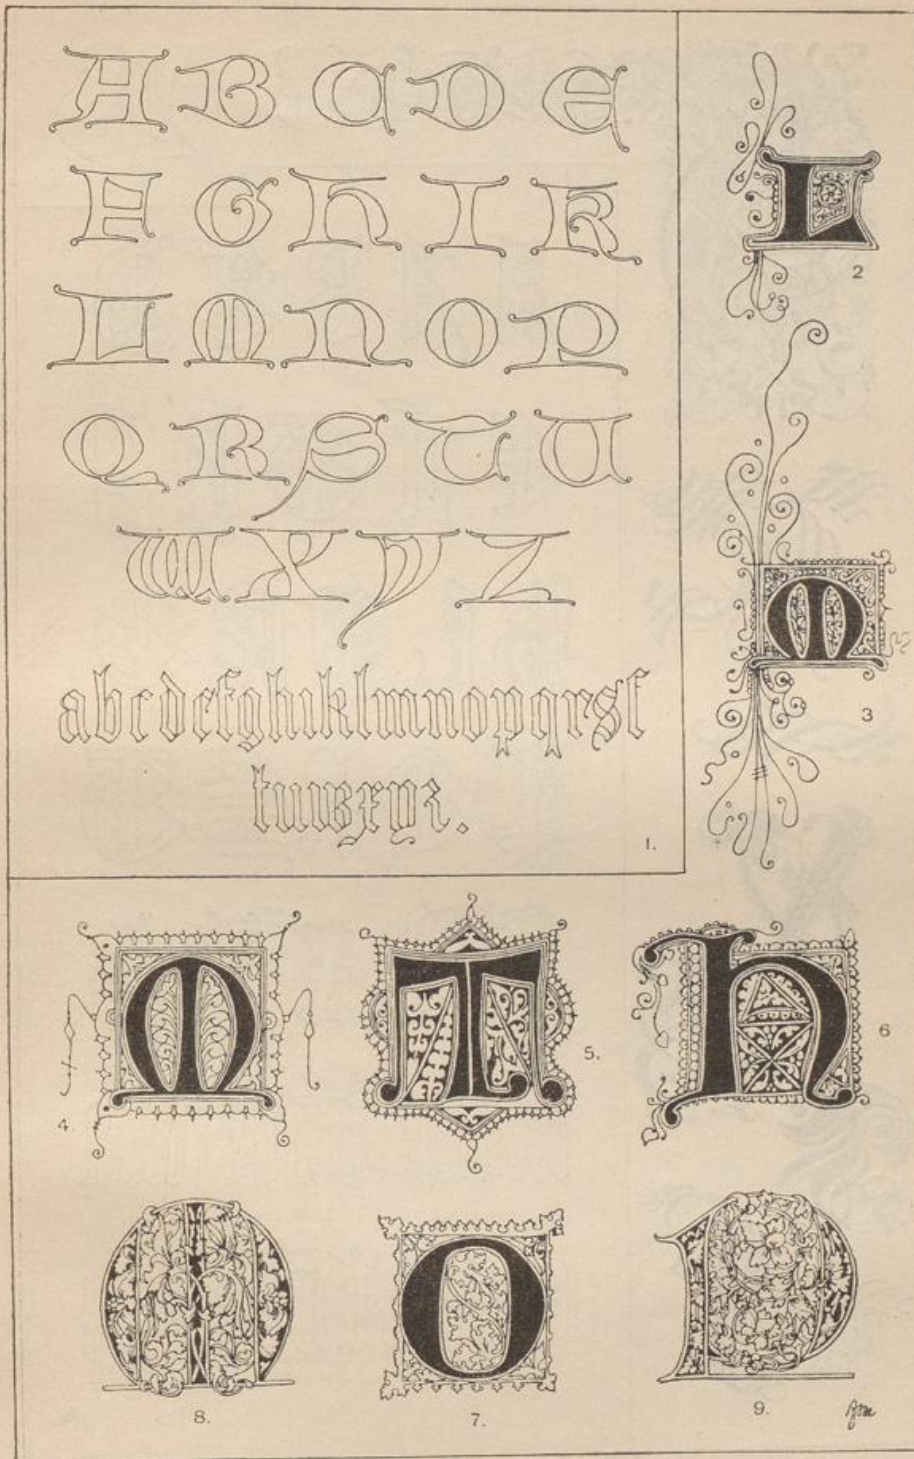 A B C D E
F G H I K
L M N O P
Q R S T U
W X Y Z
abcdefghiklmnopqrsſ
tuwxyz.
1.
L
2
M
3
M
4.
T
5.
H
6
M
8.
O
7.
N
9.